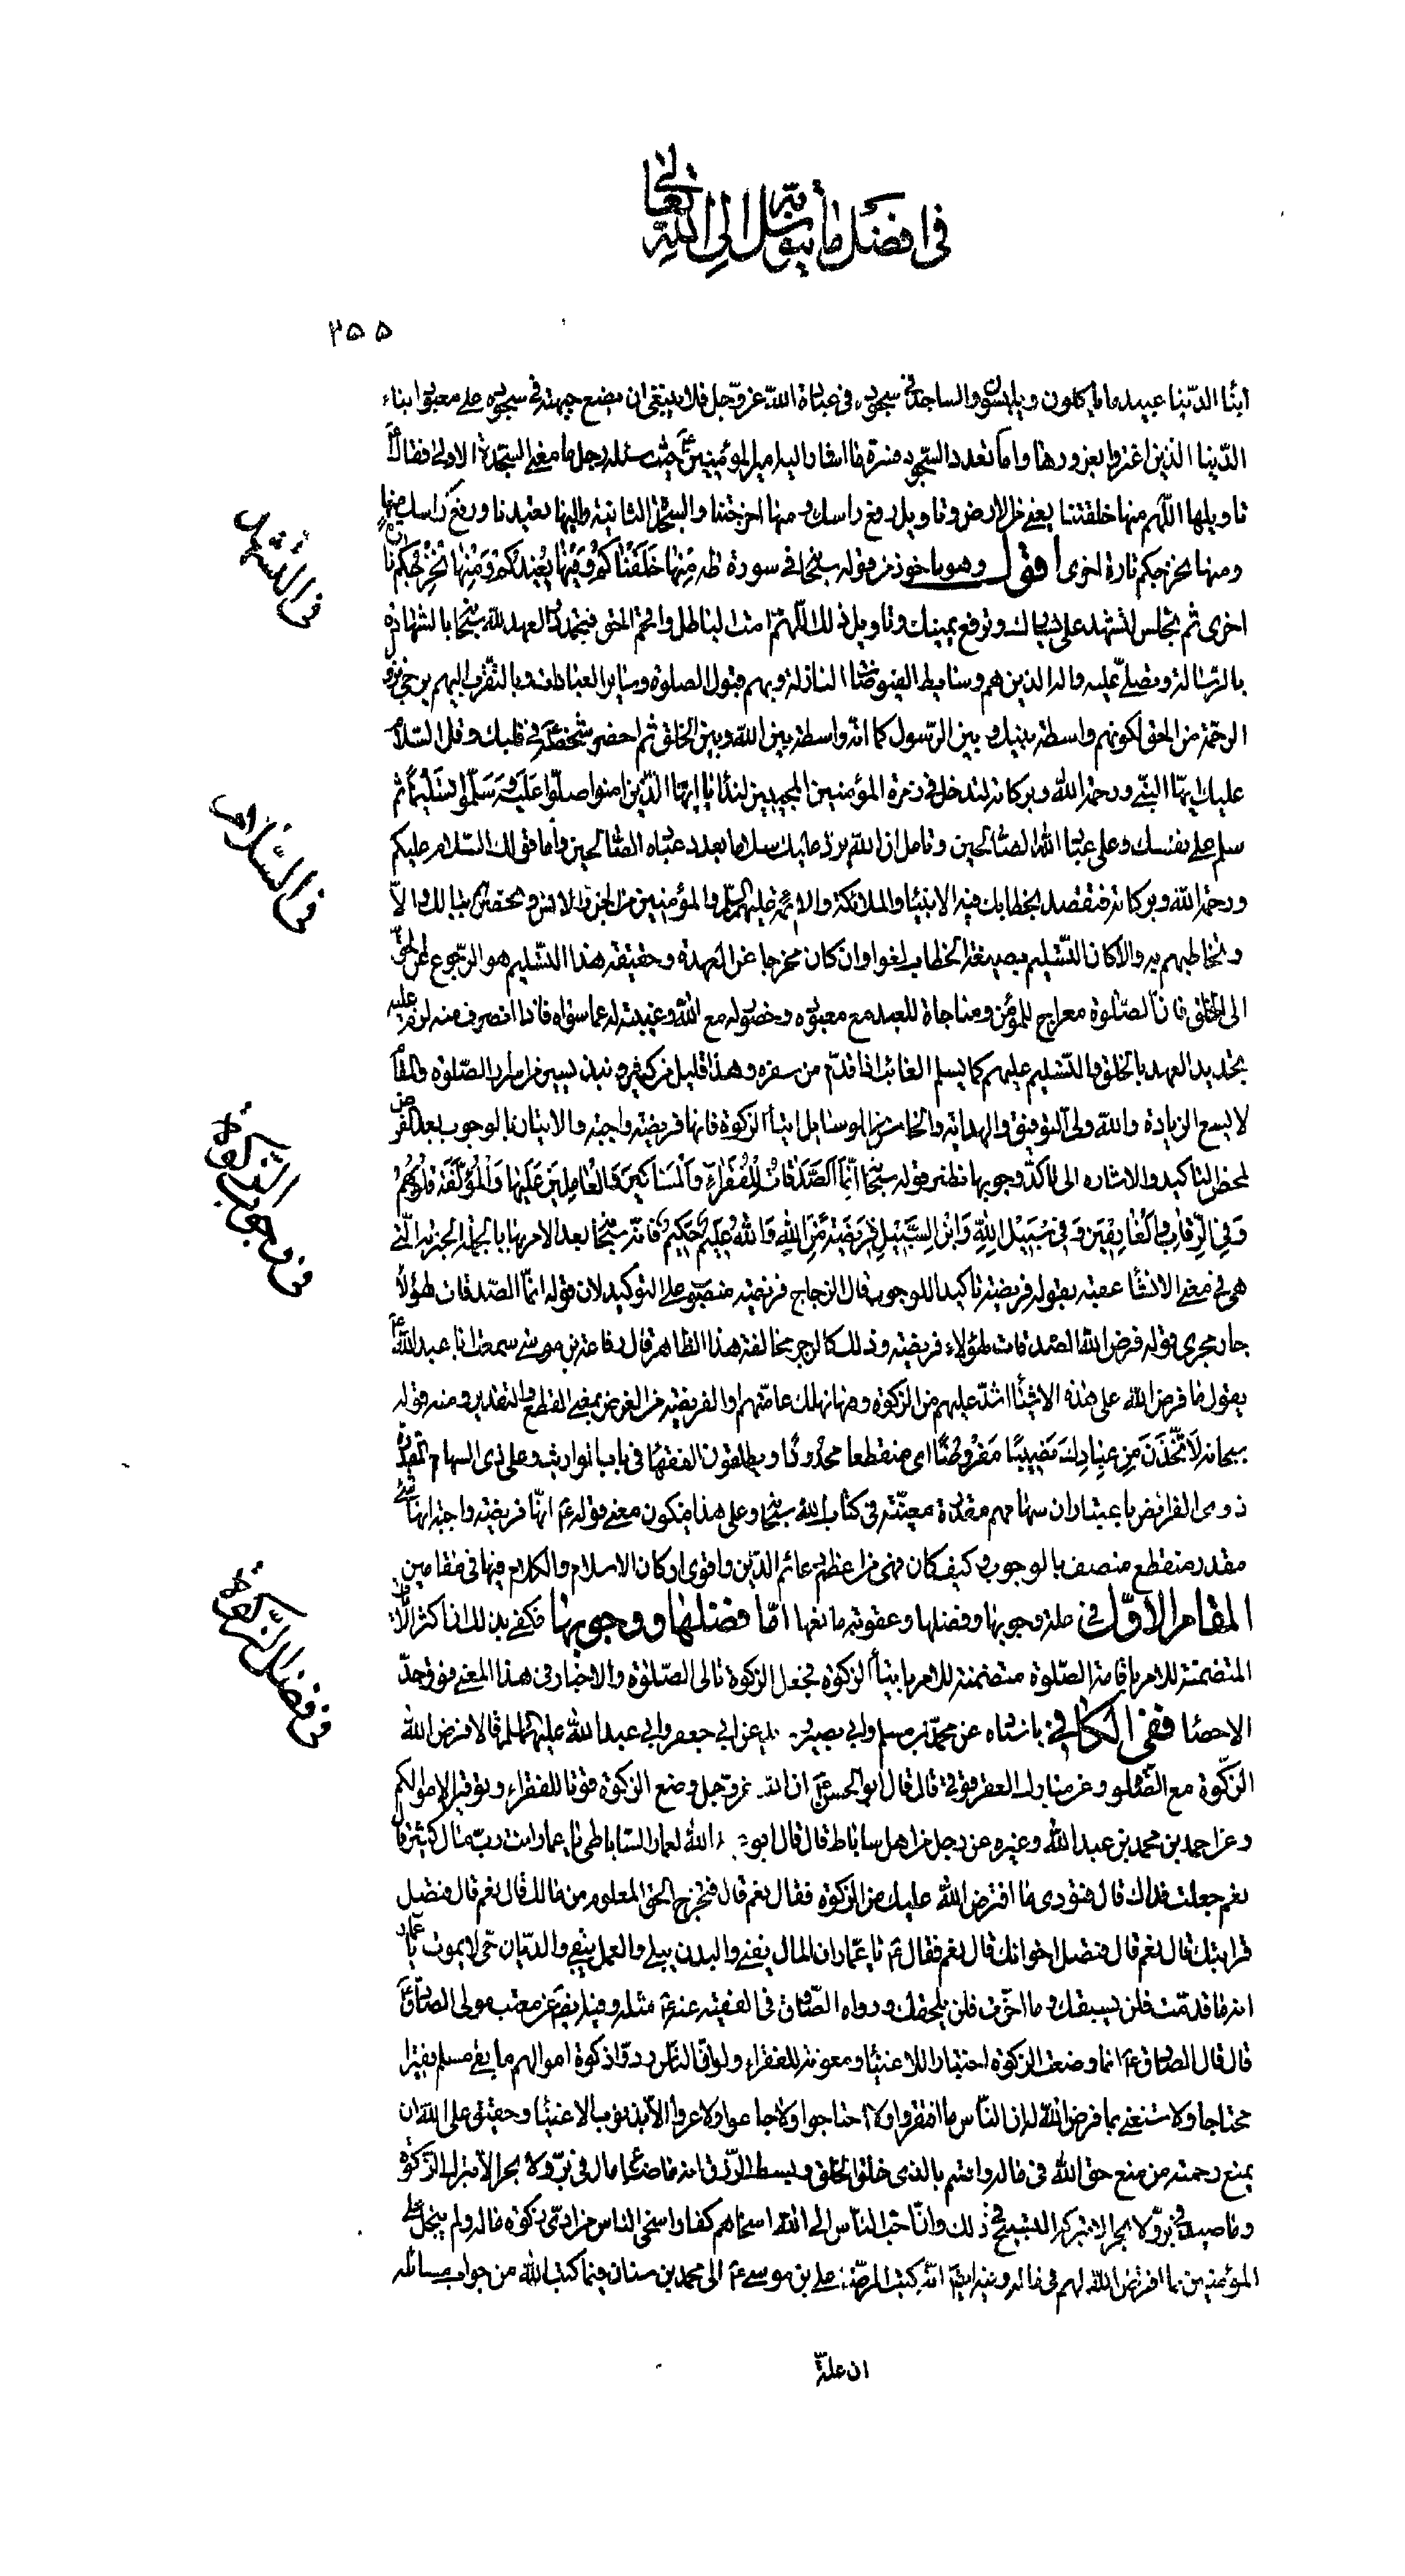 في افضل ما يتوسل به الى الله تعالى
۲۵۵
ابناء الدّنيا عبيد ما ياكلون ويلبسون والساجد في سجوده في عبادة اللّه عزّ وجل فلا ينبغى ان يضع جبهته في سجوده على معبود ابناء
الدّنيا الذين اغتروا بغرورها وامّا تعدد السّجود فسرّه ما اشار اليه امير المؤمنين ع حيث سئله رجل ما معنى السّجدة الاولى فقال ع
تاويلها اللّهم منها خلقتنا يعنى من الارض وتاويل رفع راسك ومنها اخرجتنا والسجدة الثانية واليها تعيدنا ورفع راسك منها
ومنها يخرجكم تارة اخرى اقول وهو ماخوذ من قوله سبحانه في سورة طه مِنْها خَلَقْناكُمْ وَفِيها نُعِيدُكُمْ وَمِنْها نُخْرِجُكُمْ تارة
اخرى ثم تجلس للتشهد على شمالك وترفع يمينك وتاويل ذلك اللّهمّ امت الباطل واقم الحق فتجدد العهد للّه سبحانه بالشهادة
بالرسالة وتصلّى عليه واله الذين هم وسايط الفيوضات النازلة وبهم قبول الصلوة وساير العبادات وبالتقرّب اليهم يرجى نزول
الرحمة من الحق لكونهم واسطة بينك وبين الرّسول كما انّه واسطة بين اللّه وبين الخلق ثم احضر شخصه في قلبك وقل السّلام
عليك ايّها النبّى ورحمة اللّه وبركاته لتدخل في زمرة المؤمنين المجيبين لنداء يا ايّها الّذين امنوا صلّوا عليه وسلّموا تسليما ثم
سلم على نفسك وعلى عباد اللّه الصّالحين وتامل ان اللّه يرد عليك سلاما بعدد عباده الصّالحين وامّا قولك السّلام عليكم
ورحمة اللّه وبركاته فتقصد بخطابك فيه الانبياء والملائكة والائمّة عليهم السلم والمؤمنين من الجن والانس وتحضرهم ببالك
وتخاطبهم به والّا كان التّسليم بصيغة الخطاب لغوا وان كان مخرجا عن العهدة وحقيقة هذا التّسليم هو الرّجوع عن الحقّ
الى الخلق فانّ الصّلوة معراج للمؤمن ومناجاة للعبد مع معبوده وحضوره مع اللّه وغيبته له عما سواه فاذا انصرف منه لزم عليه
تجديد العهد بالخلق والتّسليم عليهم كما يسلم الغائب اذا قدم من سفره وهذا قليل من كثير ونبذ يسير من اسرار الصّلوة والمقام
لا يسع الزيادة واللّه ولى التوفيق والهداية والخامس من الوسايل ايتاء الزكوة فانها فريضة واجبة والاتيان بالوجوب بعد الفرض
لمحض التاكيد والاشاره الى تاكد وجوبها نظير قوله سبحانه اِنَّمَا الصَّدَقاتُ لِلْفُقَراءِ وَالْمَساكِينِ وَالْعامِلِينَ عَلَيْها وَالْمُؤَلَّفَةِ قُلُوبُهُمْ
وَفِي الرِّقابِ وَالْغارِمِينَ وَفِي سَبِيلِ اللّهِ وَابْنِ السَّبِيلِ فَرِيضَةً مِنَ اللّهِ وَاللّهُ عَلِيمٌ حَكِيمٌ فانّه سبحانه بعد الامر بها بالجملة الخبرية الّتى
هى في معنى الانشاء عقبه بقوله فريضة تاكيدا للوجوب قال الزجاج فريضة منصوب على التوكيد لان قوله انّما الصّدقات لهؤلاء
جار مجرى قوله فرض اللّه الصدقات لهؤلاء فريضة وذلك كالزجر عن مخالفة هذا الظاهر قال رفاعة بن موسى سمعت ابا عبد اللّه ع
يقول ما فرض اللّه على هذه الامة شيئا اشدّ عليهم من الزكوة وفيها تهلك عامّتهم او الفريضة من الفرض بمعنى القطع والتقدير ومنه قوله
سبحانه لَاَتَّخِذَنَّ مِنْ عِبادِكَ نَصِيبًا مَفْرُوضًا اى منقطعا محدودا ويطلقون الفقهاء في باب المواريث على ذى السهام المقدرة
ذوى الفرايض باعتبار ان سهامهم مقدرة معيّنة في كتاب اللّه سبحانه وعلى هذا فيكون معنى قوله ع انّها فريضة واجبة انها شىء
مقدر منقطع متصف بالوجوب وكيف كان فهى من اعظم دعائم الدّين واقوى اركان الاسلام والكلام فيها في مقامين
المقام الاوّل في علة وجوبها وفضلها وعقوبة مانعها امّا فضلها ووجوبها فكفى بذلك ان اكثر الايات
المتضمنة للامر باقامة الصّلوة متضمنة للامر بايتاء الزكوة فجعل الزكوة تالى الصّلوة والاخبار في هذا المعنى فوق حدّ
الاحصاء ففى الكافي باسناده عن محمّد بن مسلم وابى بصير وبريد عن ابى جعفر وابى عبد اللّه عليهما السلم قالا فرض اللّه
الزّكوة مع الصّلوة وعن مبارك العقرقوفي قال قال ابو الحسن ع ان اللّه عزّ وجل وضع الزكوة قوتا للفقراء وتوفيرا لاموالكم
وعن احمد بن محمد بن عبد اللّه وغيره عن رجل من اهل ساباط قال قال ابو عبد اللّه لعمار السّاباطى يا عمار انت ربّ مال كثير قال
نعم جعلت فداك قال فتؤدى ما افترض اللّه عليك من الزكوة فقال نعم قال فتخرج الحق المعلوم من مالك قال نعم قال فتصل
قرابتك قال نعم قال فتصل اخوانك قال نعم فقال ع يا عمّار ان المال يفنى والبدن يبلى والعمل يبقى والديّان حّى لا يموت يا عمار
انه ما قدمّت فلن يسبقك وما اخّرت فلن يلحقك ورواه الصّدوق في الفقيه عنه ع مثله وفيه ايضا عن معتب مولى الصّادق ع
قال قال الصادق ع انما وضعت الزكوة اختبارا للاغنياء ومعونة للفقراء ولو انّ النّاس ادّوا زكوة اموالهم ما بقى مسلم فقيرا
محتاجا ولاستغنى بما فرض اللّه له ان النّاس ما افتقروا ولا احتاجوا ولا جاعوا ولا عروا الّا بذنوب الاغنياء وحقيق على اللّه ان
يمنع رحمته من منع حق اللّه في ماله واقسم بالذى خلق الخلق وبسط الرّزق انه ما ضاع مال في برّ ولا بحر الّا بترك الزّكوة
وما صيد صيد في برّ ولا بحر الا بتركه التّسبيح في ذلك وانّ احبّ النّاس الى اللّه اسخاهم كفا واسخى الناس من ادّى زكوة ماله ولم يبخل على
المؤمنين بما افترض اللّه لهم في ماله وفيه ايضا انّه كتب الرضا علي بن موسى ع الى محمد بن سنان فيما كتب اليه من جواب مسائله
ان علة
في التشهد
في السّلام
في وجوب الزكوة
في فضل الزّكوة